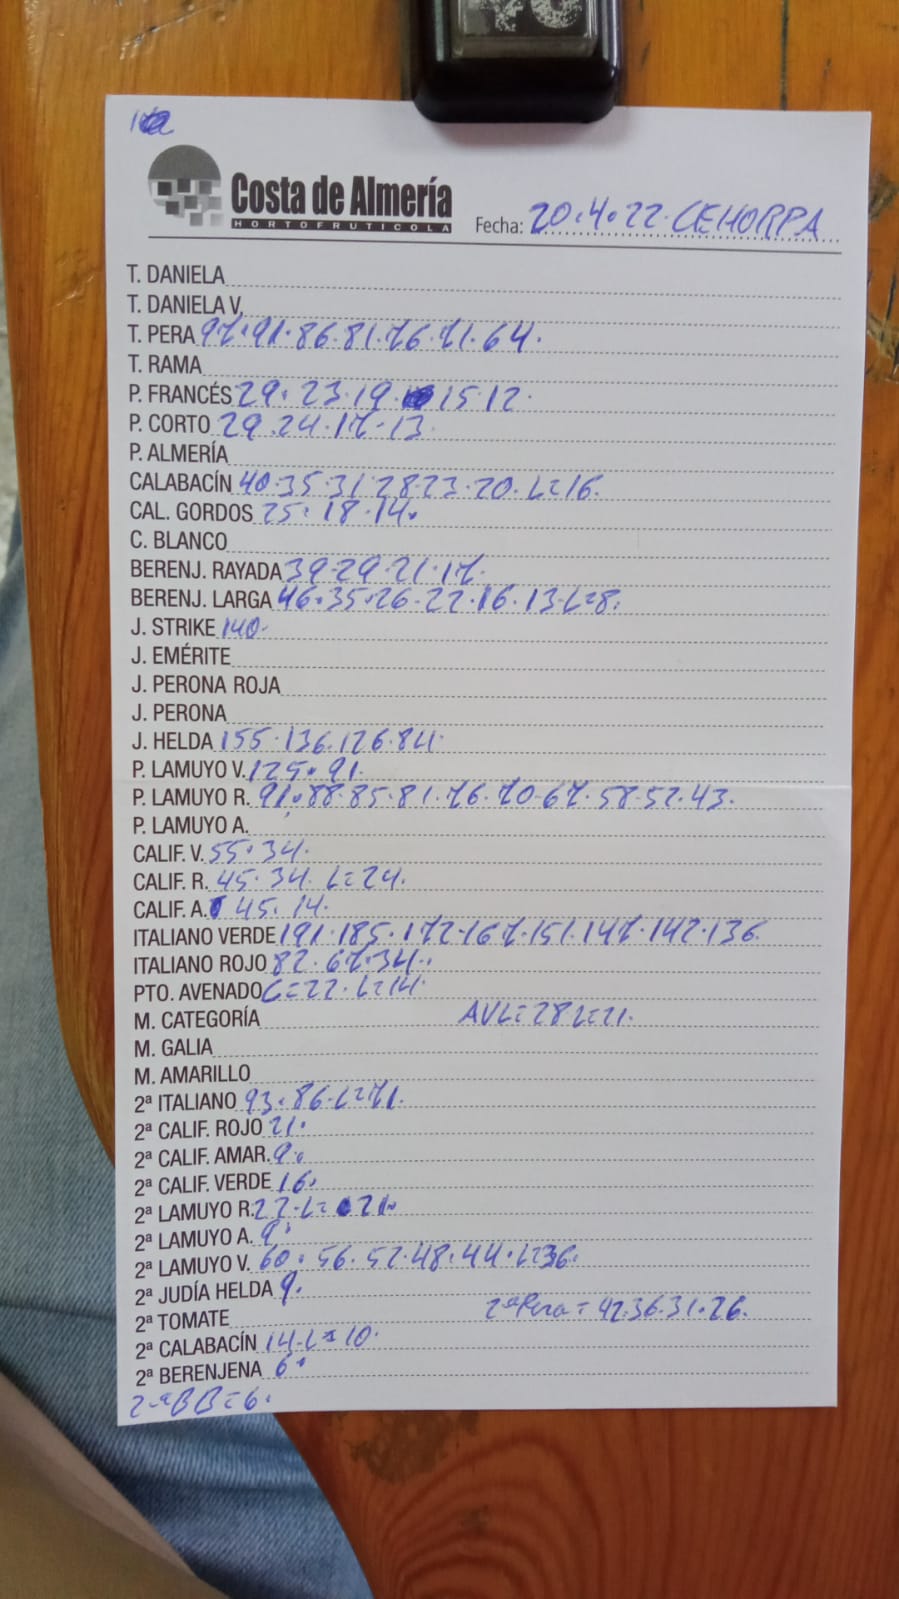 Costa de Almería
HORTOFRUTICOLA
Fecha: 20.4.22.CEHORPA
T. DANIELA
T. DANIELA V.
T. PERA 97.91.86.81.76.71.64.
T. RAMA
P. FRANCÉS 29.23.19.15.12.
P. CORTO 29.24.17.13.
P. ALMERÍA
CALABACÍN 40.35.31.28.23.20.L=16.
CAL. GORDOS 25.18.14.
C. BLANCO
BERENJ. RAYADA 39.29.21.17.
BERENJ. LARGA 46.35.26.22.16.13.L=8.
J. STRIKE 140.
J. EMÉRITE
J. PERONA ROJA
J. PERONA
J. HELDA 155.136.126.84.
P. LAMUYO V. 125.91.
P. LAMUYO R. 91.88.85.81.76.70.67.58.52.43.
P. LAMUYO A.
CALIF. V. 55.34.
CALIF. R. 45.34.L=24.
CALIF. A. 45.14.
ITALIANO VERDE 191.185.172.167.151.147.142.136.
ITALIANO ROJO 82.67.34.
PTO. AVENADO C=22.L=14.
M. CATEGORÍA AVL=28L=21.
M. GALIA
M. AMARILLO
2ª ITALIANO 93.86.L=71.
2ª CALIF. ROJO 21.
2ª CALIF. AMAR. 9.
2ª CALIF. VERDE 16.
2ª LAMUYO R. 22.L=21.
2ª LAMUYO A. 9.
2ª LAMUYO V. 60.56.52.48.44.L=36.
2ª JUDÍA HELDA 9.
2ª TOMATE 2ªPera=42.36.31.26.
2ª CALABACÍN 14.L=10.
2ª BERENJENA 6.
2-ªBB=6.